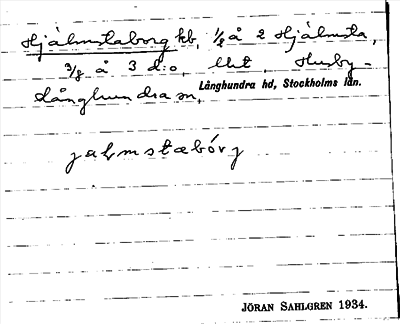 Hjälmstaborg kb, 1/2 å 2 Hjälmsta,
3/8 å 3 d:o, Husby-
Långhundra sn,
Långhundra hd, Stockholms län.
jalmstabórj
JÖRAN SAHLGREN 1934.